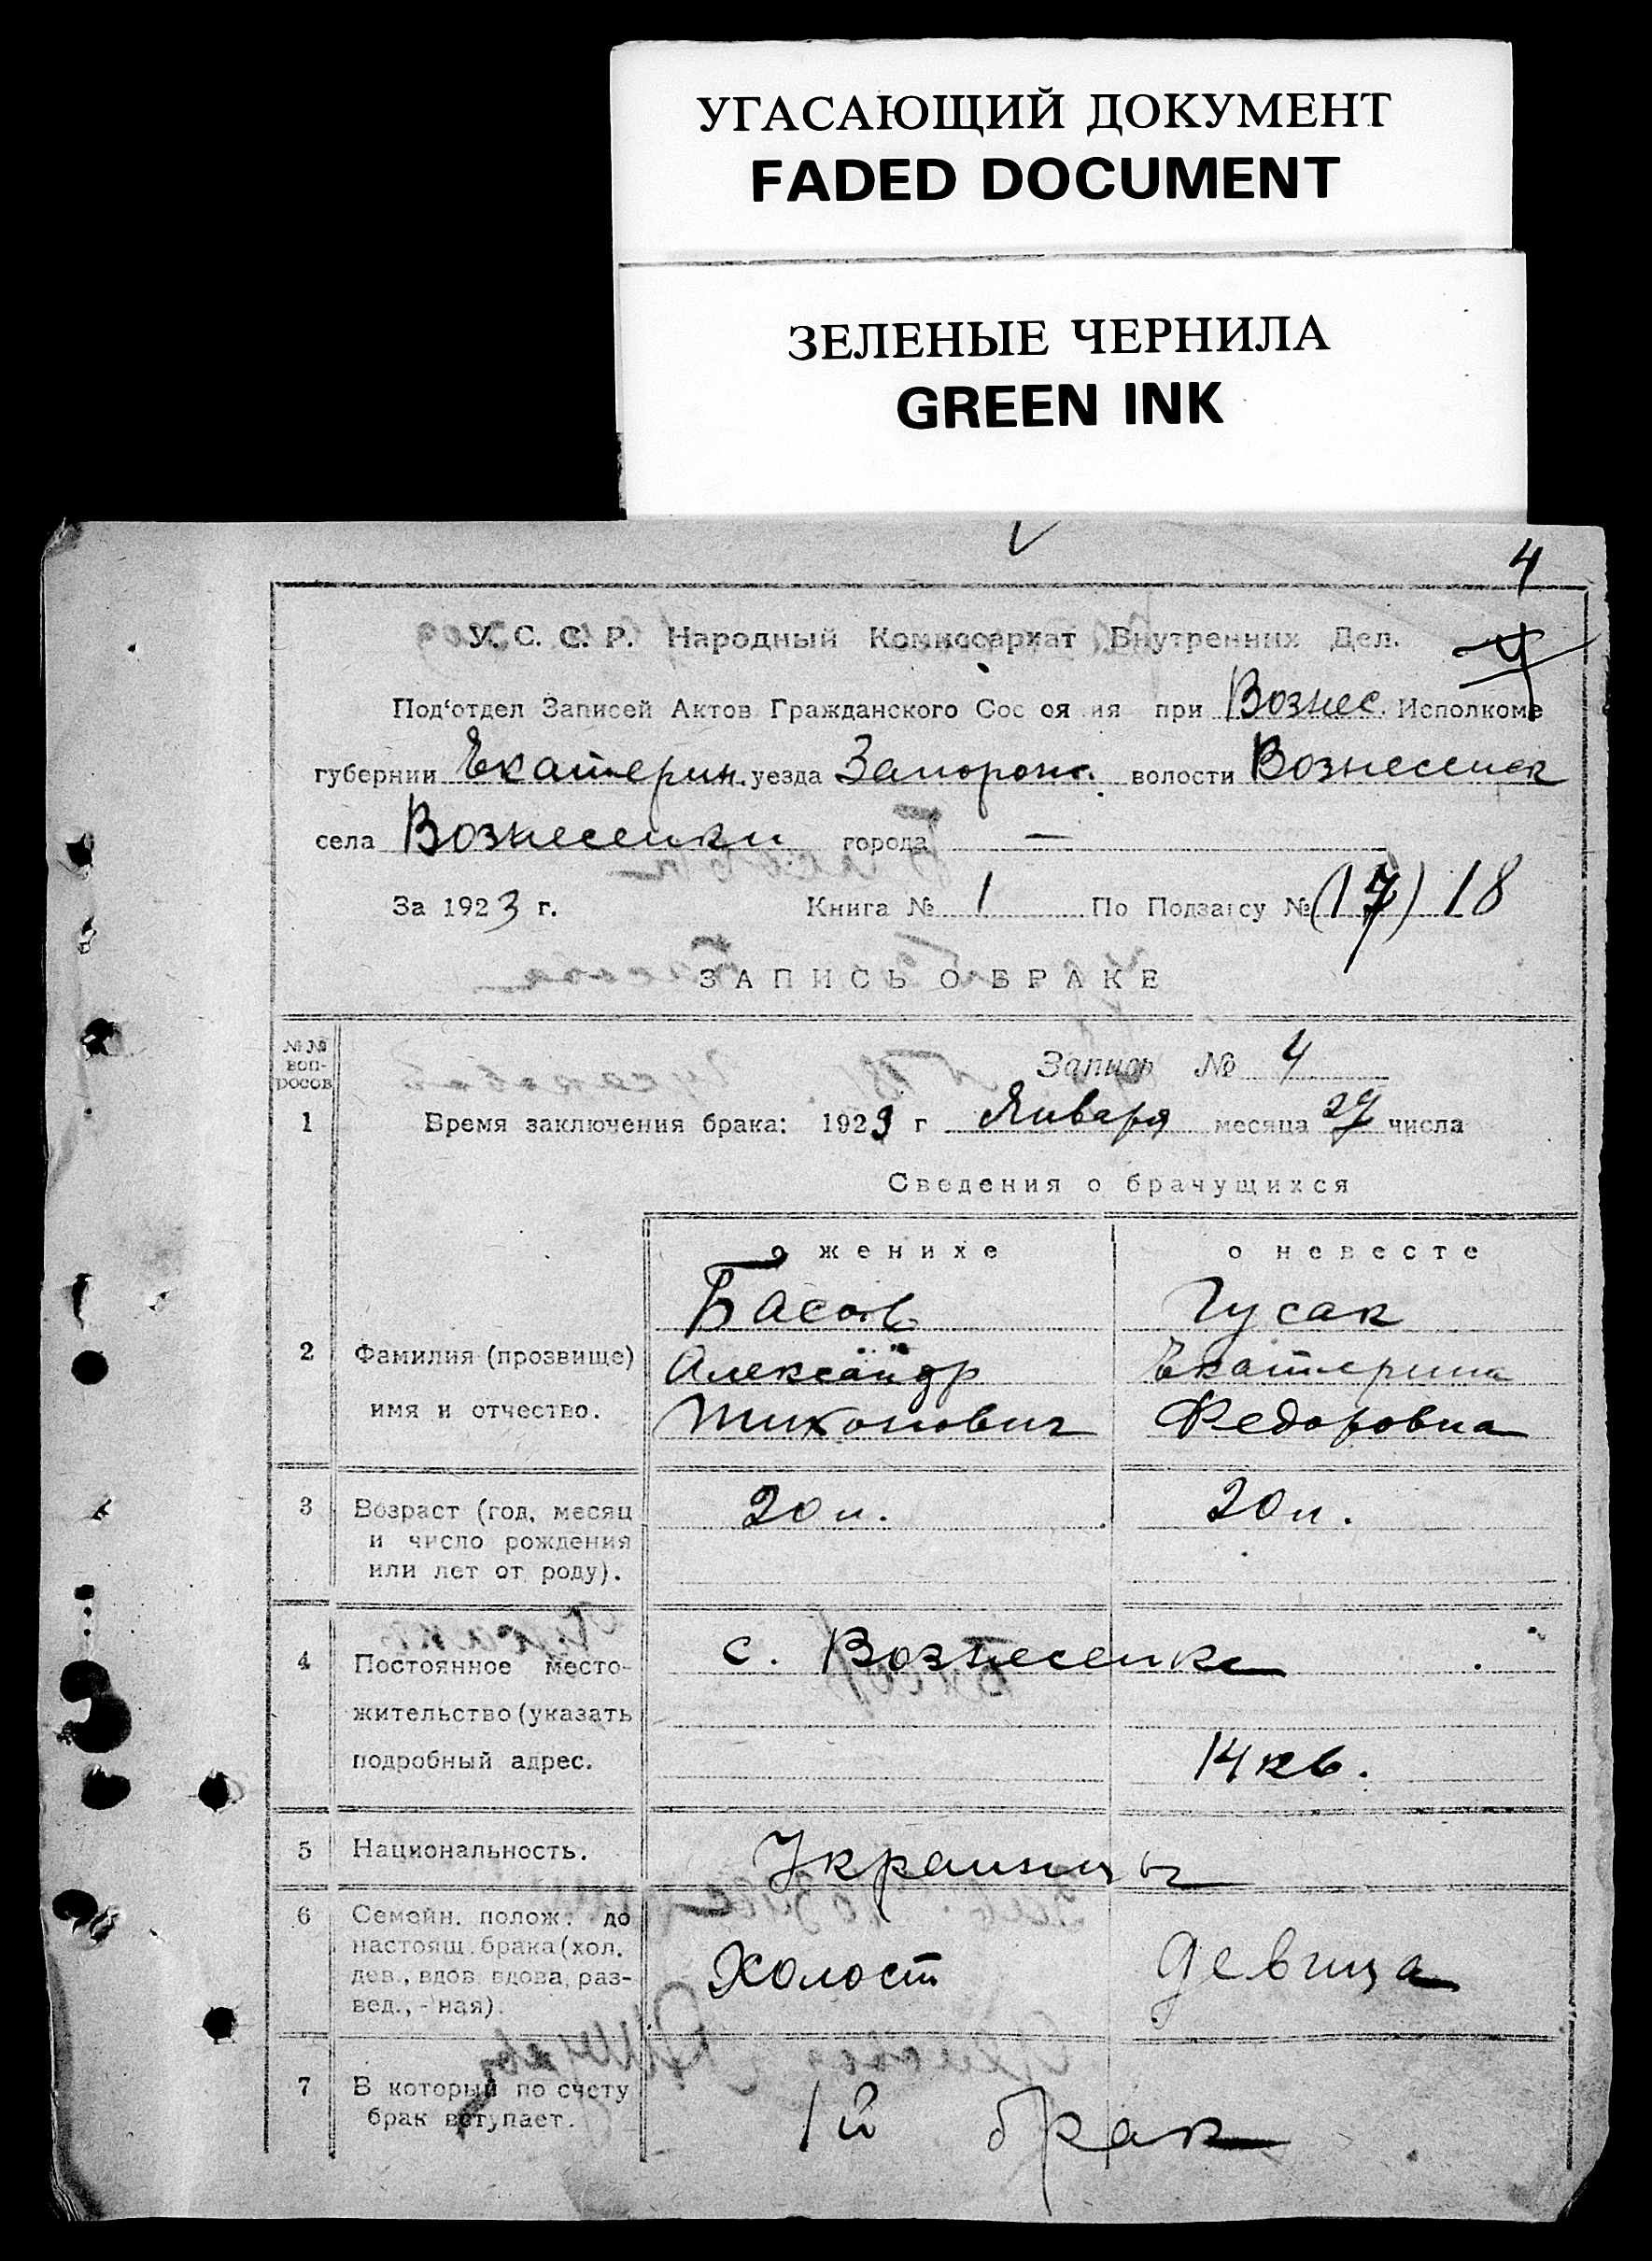 УГАСАЮЩИЙ ДОКУМЕНТ
FADED DOCUMENT
ЗЕЛЕНЫЕ ЧЕРНИЛА
GREEN INK
4
У. С. С. Р. Народный Комиссариат Внутренних Дел.
4
Под‘отдел Записей Актов Гражданского Сос оя ия при Вознес. Исполкоме
губернии Екатерин. уезда Запорож. волости Вознесенск
села Вознесенки города —
За 1923 г. Книга № 1 По Подзагсу № (17) 18
ЗАПИСЬ О БРАКЕ
№№ вопросов
Запись № 4
1 Время заключения брака: 1923 г Января месяца 29 числа
Сведения о брачущихся
о женихе о невесте
Басов Гусак
2 Фамилия (прозвище) Александр Екатерина
имя и отчество. Тихонович Федоровна
3 Возраст (год, месяц 20 л. 20 л.
и число рождения
или лет от роду).
4 с. Вознесенка
Постоянное место-
жительство (указать
подробный адрес. 14 кв.
5 Национальность. Украинцы
6 Семейн. полож. до
настоящ. брака (хол. Холост девица
дев., вдов. вдова, раз-
вед., - ная).
7 В который по счету 1й брак
брак вступает.